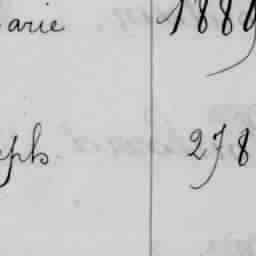 arie 1889
eph. 278